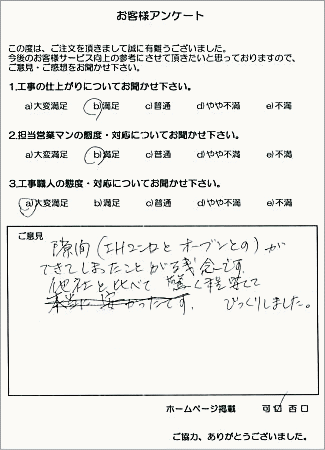 お客様アンケート
この度は、ご注文を頂きまして誠に有難うございました。
今後のお客様サービス向上の参考にさせて頂きたいと思っておりますので、
ご意見・ご感想をお聞かせ下さい。
1.工事の仕上がりについてお聞かせ下さい。
a)大変満足 b)満足 c)普通 d)やや不満 e)不満
2.担当営業マンの態度・対応についてお聞かせ下さい。
a)大変満足 b)満足 c)普通 d)やや不満 e)不満
3.工事職人の態度・対応についてお聞かせ下さい。
a)大変満足 b)満足 c)普通 d)やや不満 e)不満
ご意見
隙間(IHコンロと オーブンとの)が
できてしまったことが残念です。
他社と比べて 驚く程
本当に安かったです。 びっくりしました。
ホームページ掲載 可 否
ご協力、ありがとうございました。